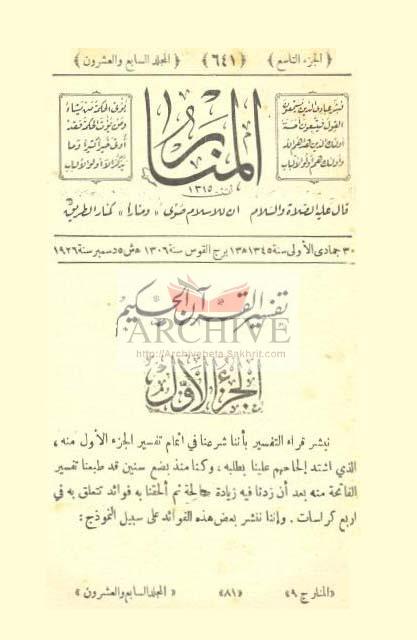 ﴿ الجزء التاسع ﴾ ﴿ ٦٤١ ﴾ ﴿ المجلد السابع والعشرون ﴾
فبشر عبادي الذين يستمعون
القول فيتبعون أحسنه
أولئك الذين هداهم الله
وأولئك هم أولو الألباب
المنار
١٣١٥
يؤتي الحكمة من يشاء
ومن يؤت الحكمة فقد
أوتي خيرا كثيرا وما
يذكر إلا أولو الألباب
قال عليه الصلاة والسلام ان للاسلام صوى « ومنارا » كمنار الطريق
٣٠ جمادى الأولى سنة ١٣٤٥ برج القوس سنة ١٣٠٦ ه ش ٥ دسمبر سنة ١٩٢٦
تفسير القرآن الحكيم
ARCHIVE
http://Archivebeta.Sakhrit.com
الجزء الأول
نبشر قراء التفسير بأننا شرعنا في اتمام تفسير الجزء الأول منه ،
الذي اشتد إلحاحهم علينا بطلبه ، وكنا منذ بضع سنين قد طبعنا تفسير
الفاتحة منه بعد أن زدنا فيه زيادة صالحة ثم ألحقنا به فوائد تتعلق به في
اربع كراسات . وإننا ننشر بعض هذه الفوائد على سبيل النموذج :
«المنار ج ٩» « ٨١ » « المجلد السابع والعشرون »